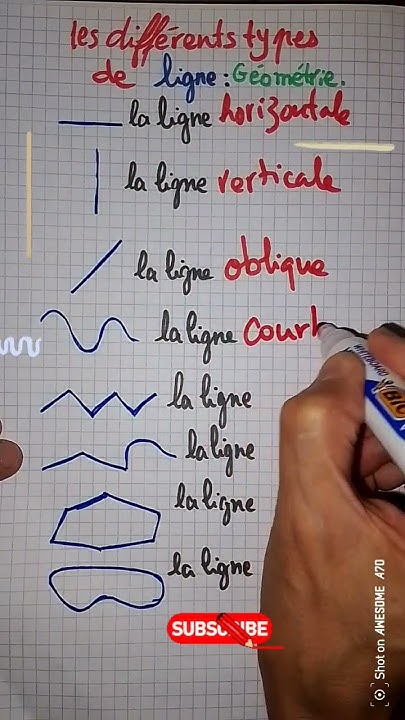 les différents types
de ligne : Géométrie.
la ligne horizontale
la ligne verticale
la ligne oblique
la ligne cour
la ligne
la ligne
la ligne
la ligne
SUBSCRIBE
WHITEBOARD
BIC
Shot on AWESOME A70